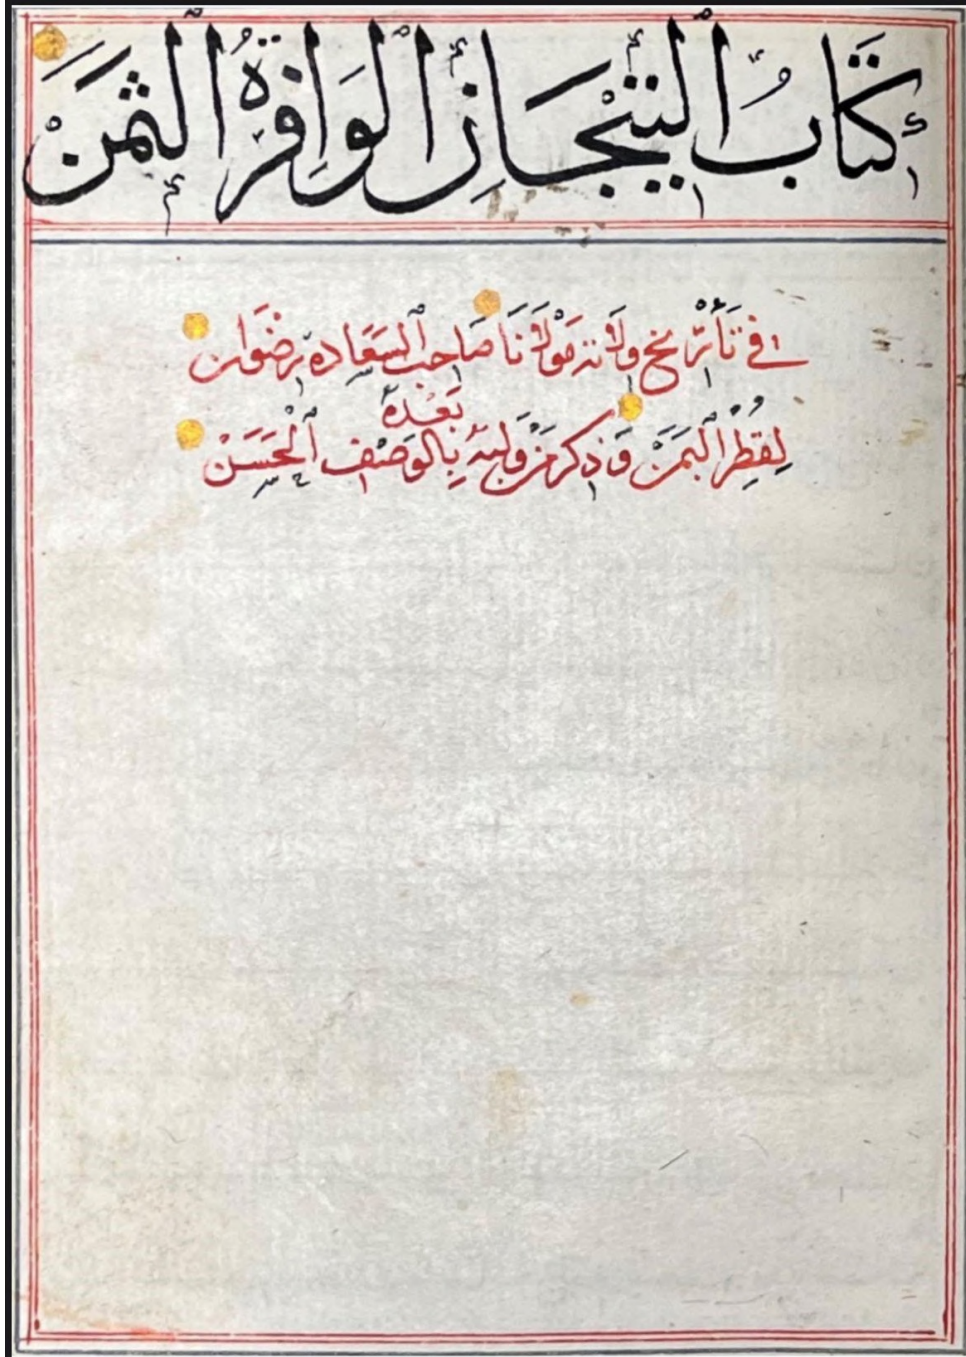 كِتَابُ ٱلتِّيْجَانِ ٱلْوَافِرَةِ ٱلثَّمَنْ
في تَأرِيخ ولايَة مَوْلَانَا صَاحِب ٱلسَّعَادة رِضْوَان
بَعْدَهُ
لِقُطْرِ اليَمَنْ وَذِكر مَنْ وَلِيَهُ بِالْوَصْفِ ٱلْحَسَنْ